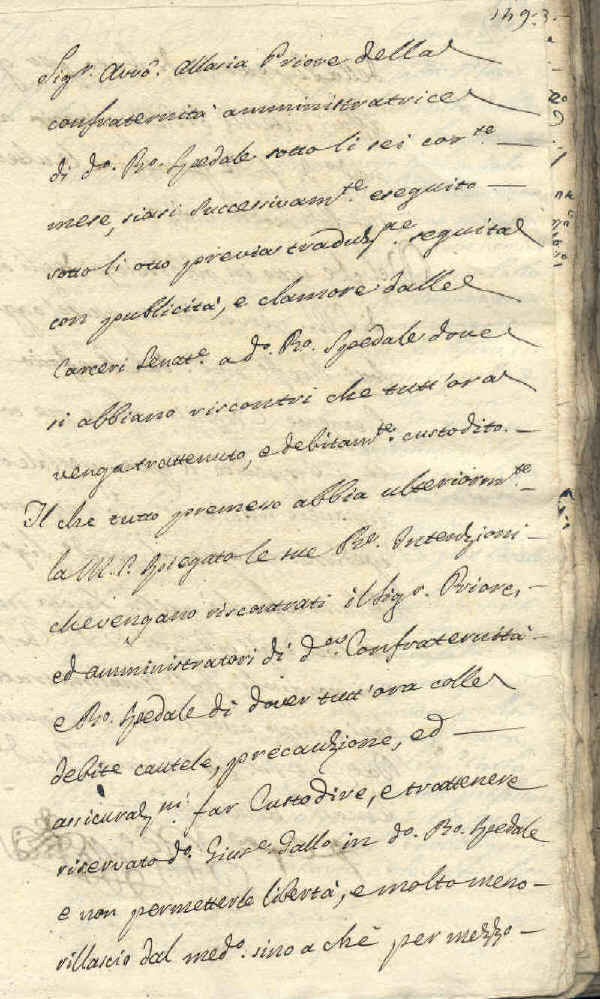 149. 3.
Sigr. Avvo. Allasia Priore della
confraternità amministratrice
di do. Ro. Spedale sotto li sei corte.
mese, siasi successivamte. eseguito
sotto li otto previa traduzne. seguita
con publicità, e clamore dalle
Carceri Senate. a do. Ro. Spedale dove
si abbiano riscontri che tutt'ora
venga trattenuto, e debitamte. custodito.
Il che tutto premesso abbia ulteriormte.
la M. S. spiegato le sue Re. Intenzioni
che vengano riscontrati il Sigr. Priore,
ed amministratori di da. Confraternità
e Ro. Spedale di dover tutt'ora colle
debite cautele, precauzione, ed
assicurazni. far Custodire, e trattenere
riservato do. Giuse. Gallo in do. Ro. Spedale
e non permetterle libertà, e molto meno
rillascio dal medo. sino a chè per mezzo